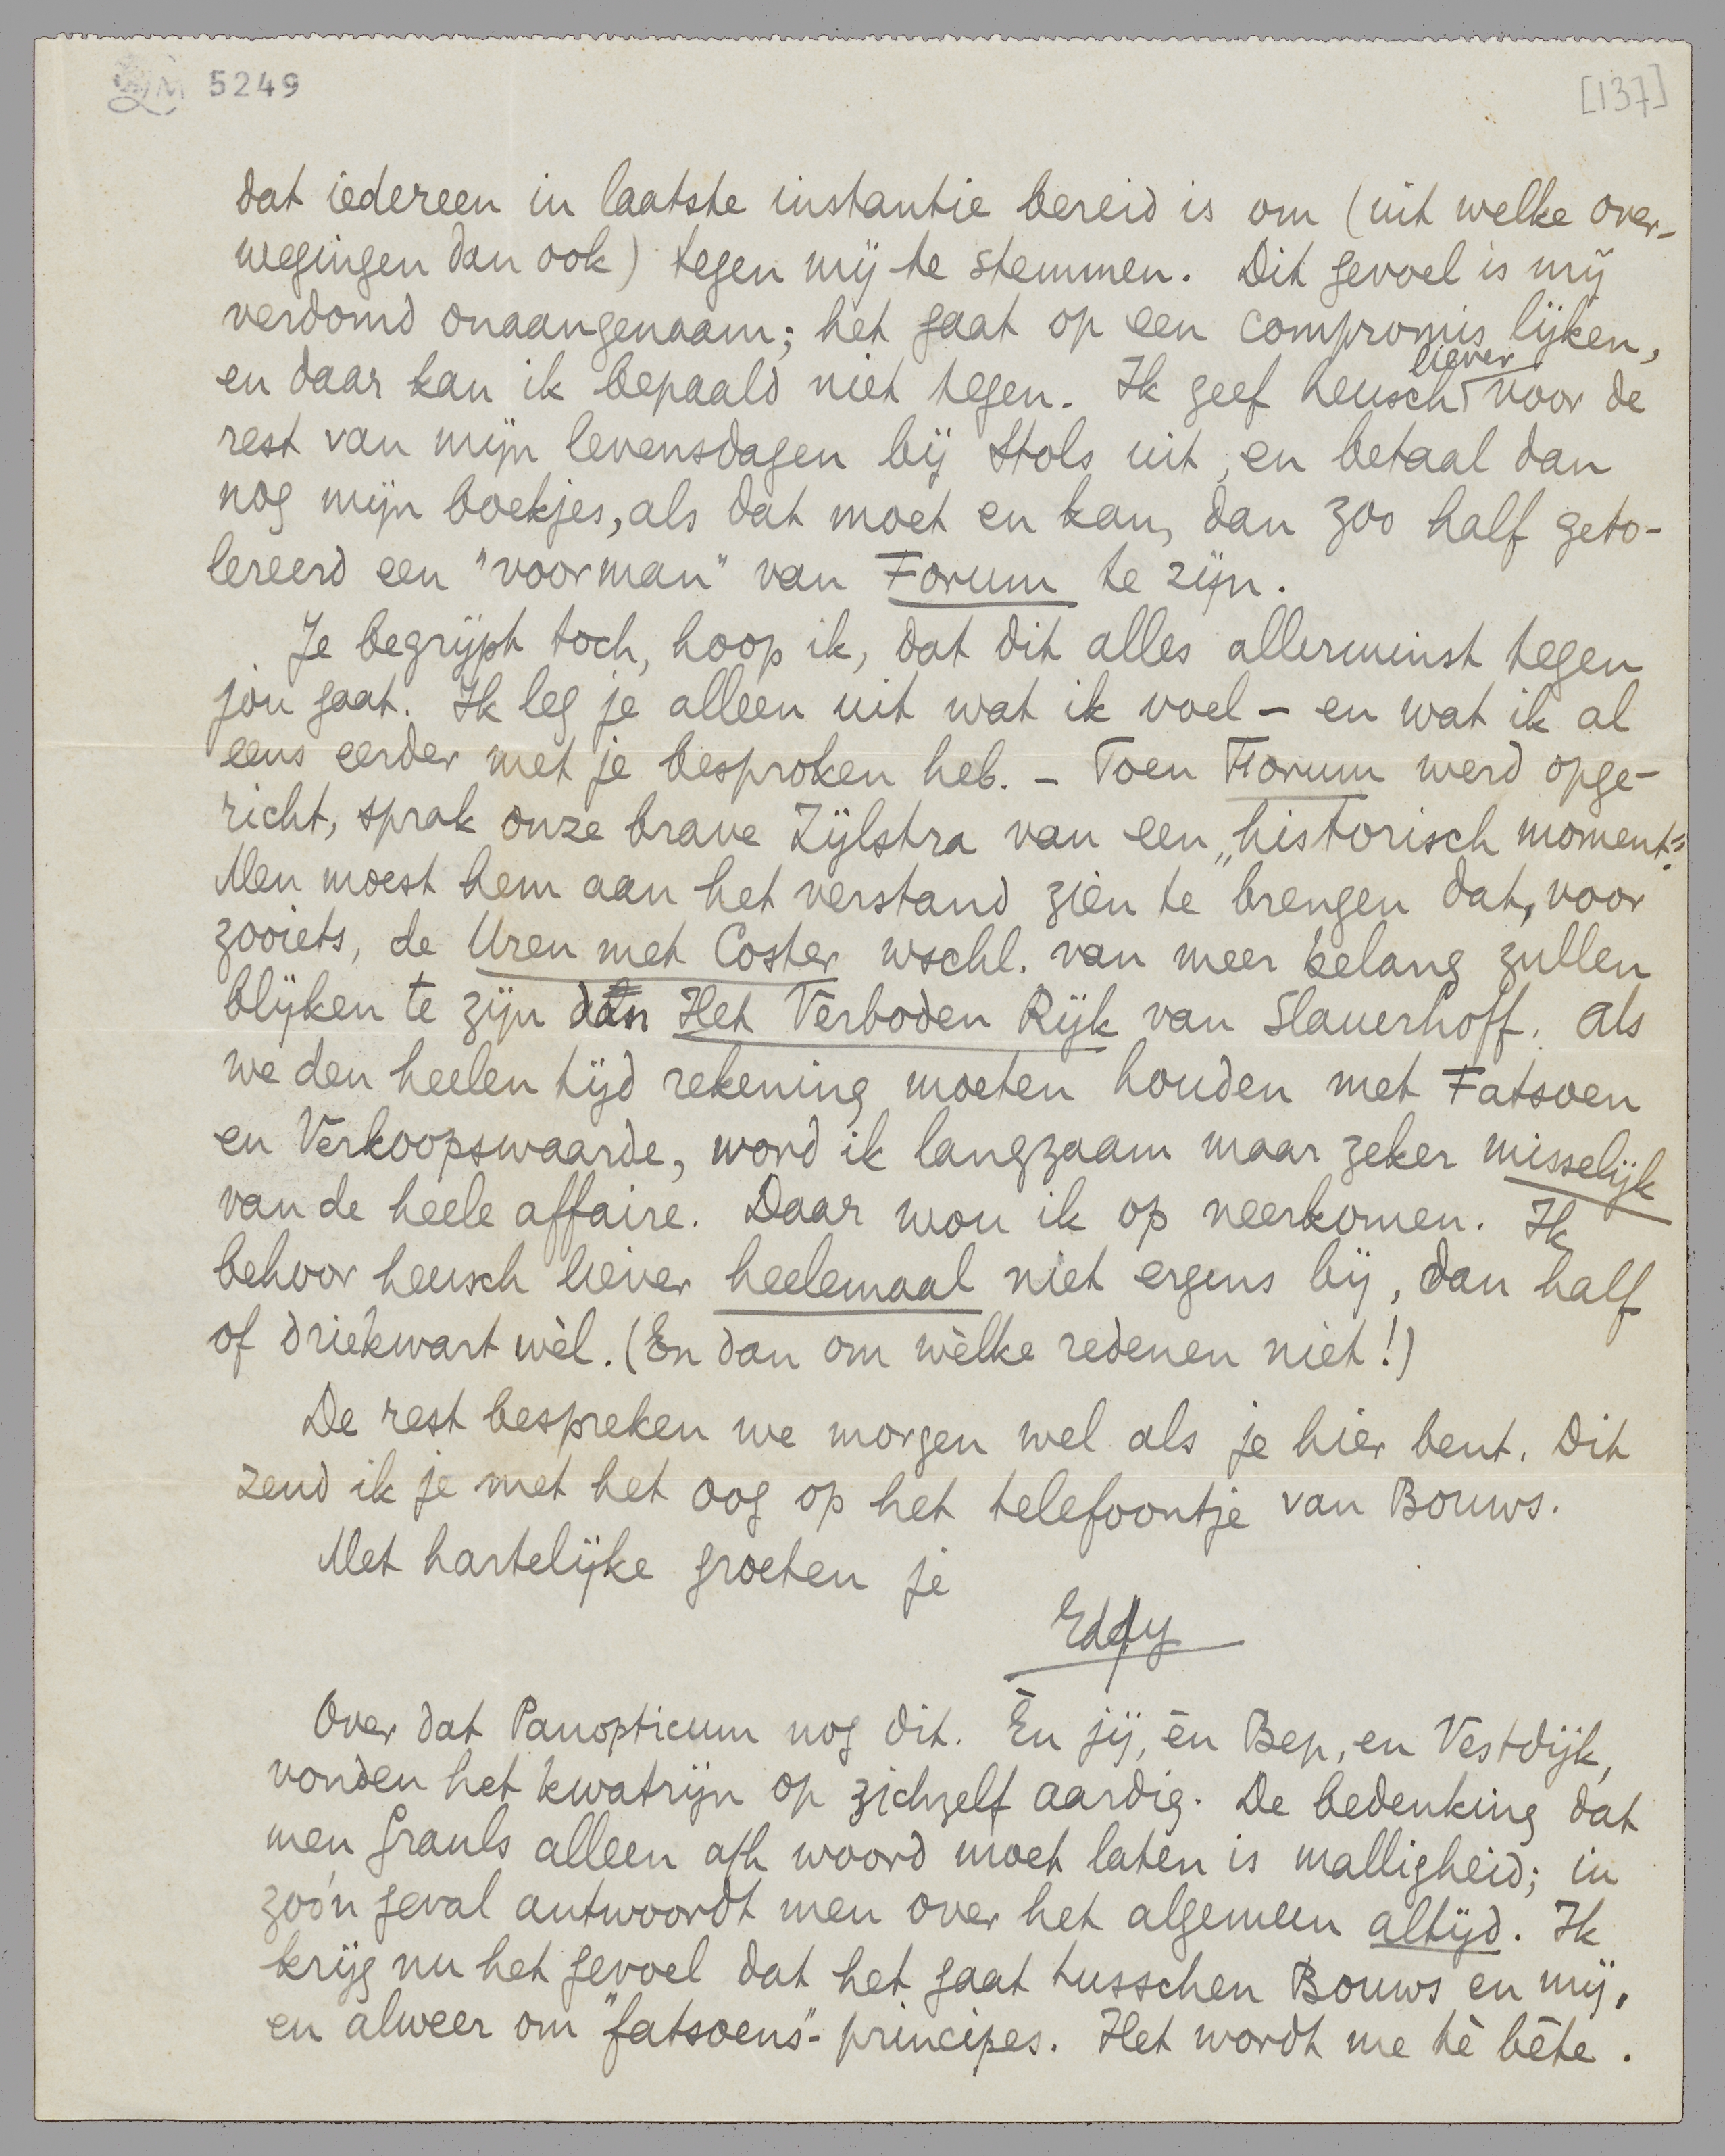 LM 5249
[137]
dat iedereen in laatste instantie bereid is om (uit welke over-
wegingen dan ook) tegen mij te stemmen. Dit gevoel is mij
verdomd onaangenaam; het gaat op een compromis lijken,
en daar kan ik bepaald niet tegen. Ik geef heusch liever voor de
rest van mijn levensdagen bij Stols uit, en betaal dan
nog mijn boekjes, als dat moet en kan, dan zoo half geto-
lereerd een "voorman" van Forum te zijn.
Je begrijpt toch, hoop ik, dat dit alles allerminst tegen
jòu gaat. Ik leg je alleen uit wat ik voel – en wat ik al
eens eerder met je besproken heb. – Toen Forum werd opge-
richt, sprak onze brave Zijlstra van een „historisch moment".
Men moest hem aan het verstand zien te brengen dat, voor
zooiets, de Uren met Coster wschl. van meer belang zullen
blijken te zijn dan Het Verboden Rijk van Slauerhoff. Als
we den heelen tijd rekening moeten houden met Fatsoen
en Verkoopswaarde, word ik langzaam maar zeker misselijk
van de heele affaire. Daar wou ik op neerkomen. Ik
behoor heusch liever heelemaal niet ergens bij, dan half
of driekwart wèl. (En dan om wèlke redenen niet!)
De rest bespreken we morgen wel als je hier bent. Dit
zend ik je met het oog op het telefoontje van Bouws.
Met hartelijke groeten je
Eddy
Over dat Panopticum nog dit. Èn jij, èn Bep, en Vestdijk,
vonden het kwatrijn op zichzelf aardig. De bedenking dat
men Grauls alleen a/h woord moet laten is malligheid; in
zoo'n geval antwoordt men over het algemeen altijd. Ik
krijg nu het gevoel dat het gaat tusschen Bouws en mij,
en alweer om "fatsoens"-principes. Het wordt me tè bête.